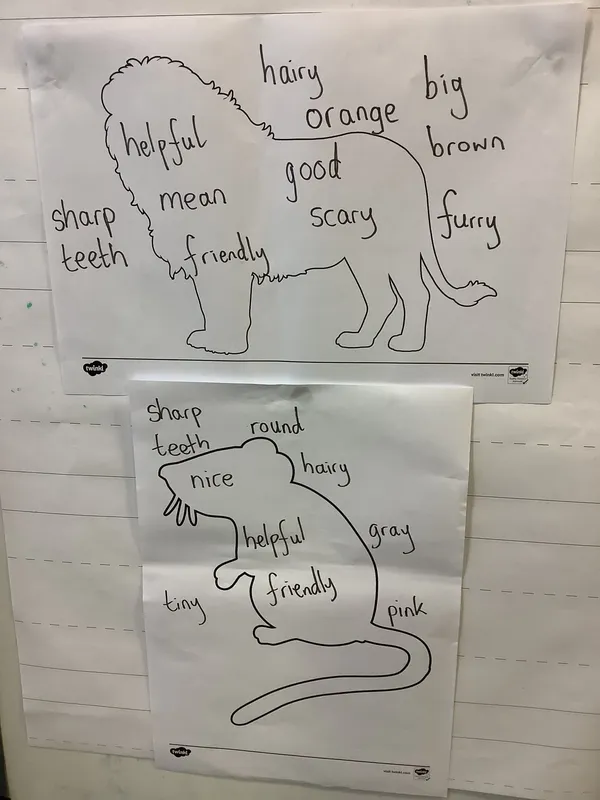 hairy
big
orange
brown
helpful
good
mean
scary
sharp
teeth
furry
friendly
twinkl
visit twinkl.com
twinkl
sharp
teeth
round
nice
hairy
helpful
gray
friendly
tiny
pink
twinkl
visit twinkl.com
twinkl